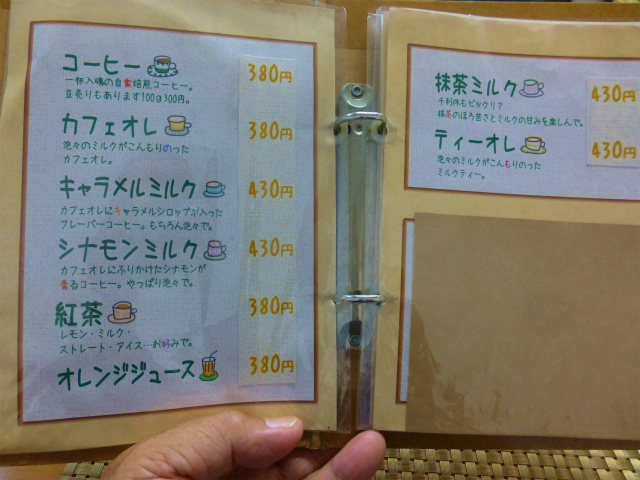 コーヒー 380円
一杯入魂の自家焙煎コーヒー。
豆売りもあります100g300円。
カフェオレ 380円
泡々のミルクがこんもりのった
カフェオレ。
キャラメルミルク 430円
カフェオレにキャラメルシロップが入った
フレーバーコーヒー。もちろん泡々で。
シナモンミルク 430円
カフェオレにふりかけたシナモンが
香るコーヒー。やっぱり泡々で。
紅茶 380円
レモン・ミルク・
ストレート・アイス…お好みで。
オレンジジュース 380円
抹茶ミルク 430円
千利休もビックリ？
抹茶のほろ苦さとミルクの甘みを楽しんで。
ティーオレ 430円
泡々のミルクがこんもりのった
ミルクティー。